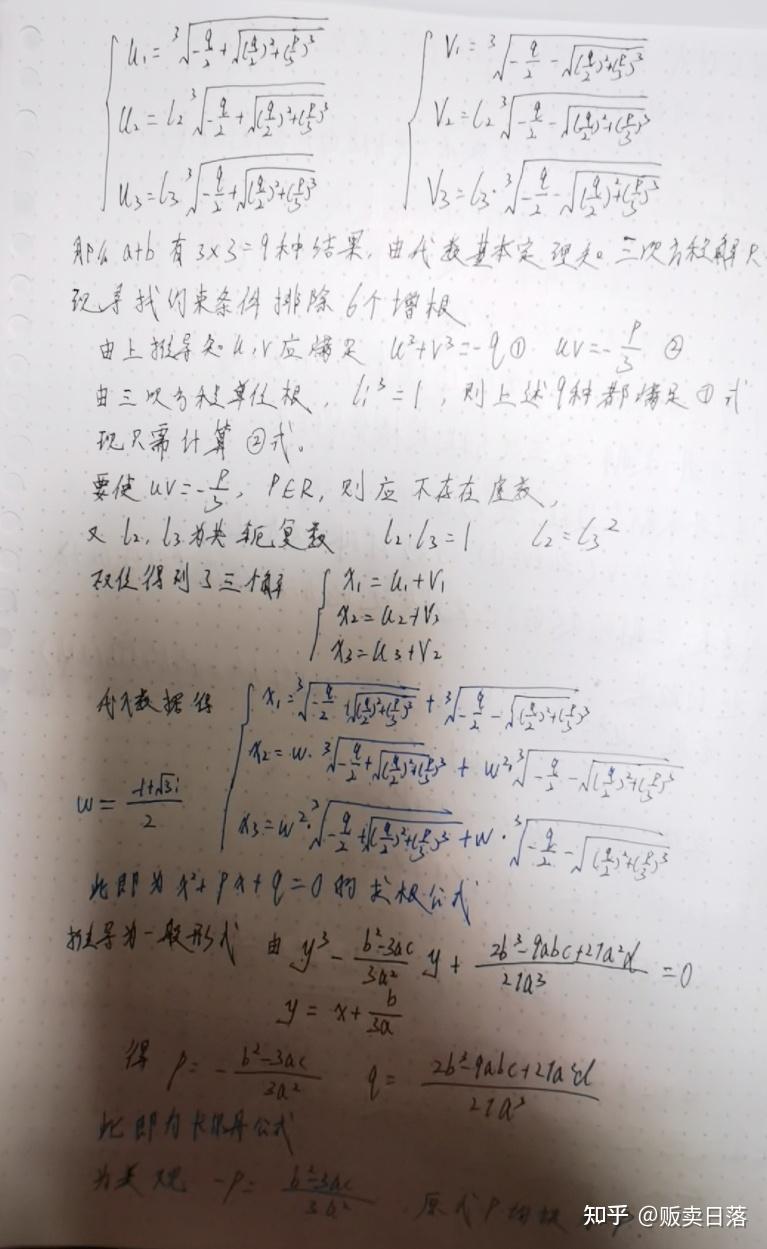 u₁ = ∛(-q/2 + √((q/2)²+(p/3)³))    V₁ = ∛(-q/2 - √((q/2)²+(p/3)³))
u₂ = l₂ ∛(-q/2 + √((q/2)²+(p/3)³))    V₂ = l₂ ∛(-q/2 - √((q/2)²+(p/3)³))
u₃ = l₃ ∛(-q/2 + √((q/2)²+(p/3)³))    V₃ = l₃·∛(-q/2 - √((q/2)²+(p/3)³))
那么 a+b 有 3×3=9种结果,由代数基本定理知。三次方程解只
现寻找约束条件排除6个增根
由上推导知 u,v 应满足 u³+v³=-q① uv=-p/3 ②
由三次方程单位根, lᵢ³=1,则上述9种都满足①式
现只需计算②式。
要使 uv=-p/3, p∈R,则应不存在虚数,
又 l₂,l₃为共轭复数 l₂·l₃=1 l₂=l₃²
得到了三个解 x₁=u₁+V₁
x₂=u₂+V₃
x₃=u₃+V₂
代入数据得 x₁=∛(-q/2 + √((q/2)²+(p/3)³)) + ∛(-q/2 - √((q/2)²+(p/3)³))
x₂=w·∛(-q/2 + √((q/2)²+(p/3)³)) + w²·∛(-q/2 - √((q/2)²+(p/3)³))
w=(-1+√3i)/2
x₃=w²·∛(-q/2 + √((q/2)²+(p/3)³)) + w·∛(-q/2 - √((q/2)²+(p/3)³))
此即为 x³+px+q=0 的求根公式
推导为一般形式 由 y³ - (b²-3ac)/(3a²) y + (2b³-9abc+27a²d)/(27a³) = 0
y = x + b/(3a)
得 p=-(b²-3ac)/(3a²) q=(2b³-9abc+27a²d)/(27a³)
此即为卡尔丹公式
为美观 -p=(b²-3ac)/(3a²),原式p均
知乎 @贩卖日落